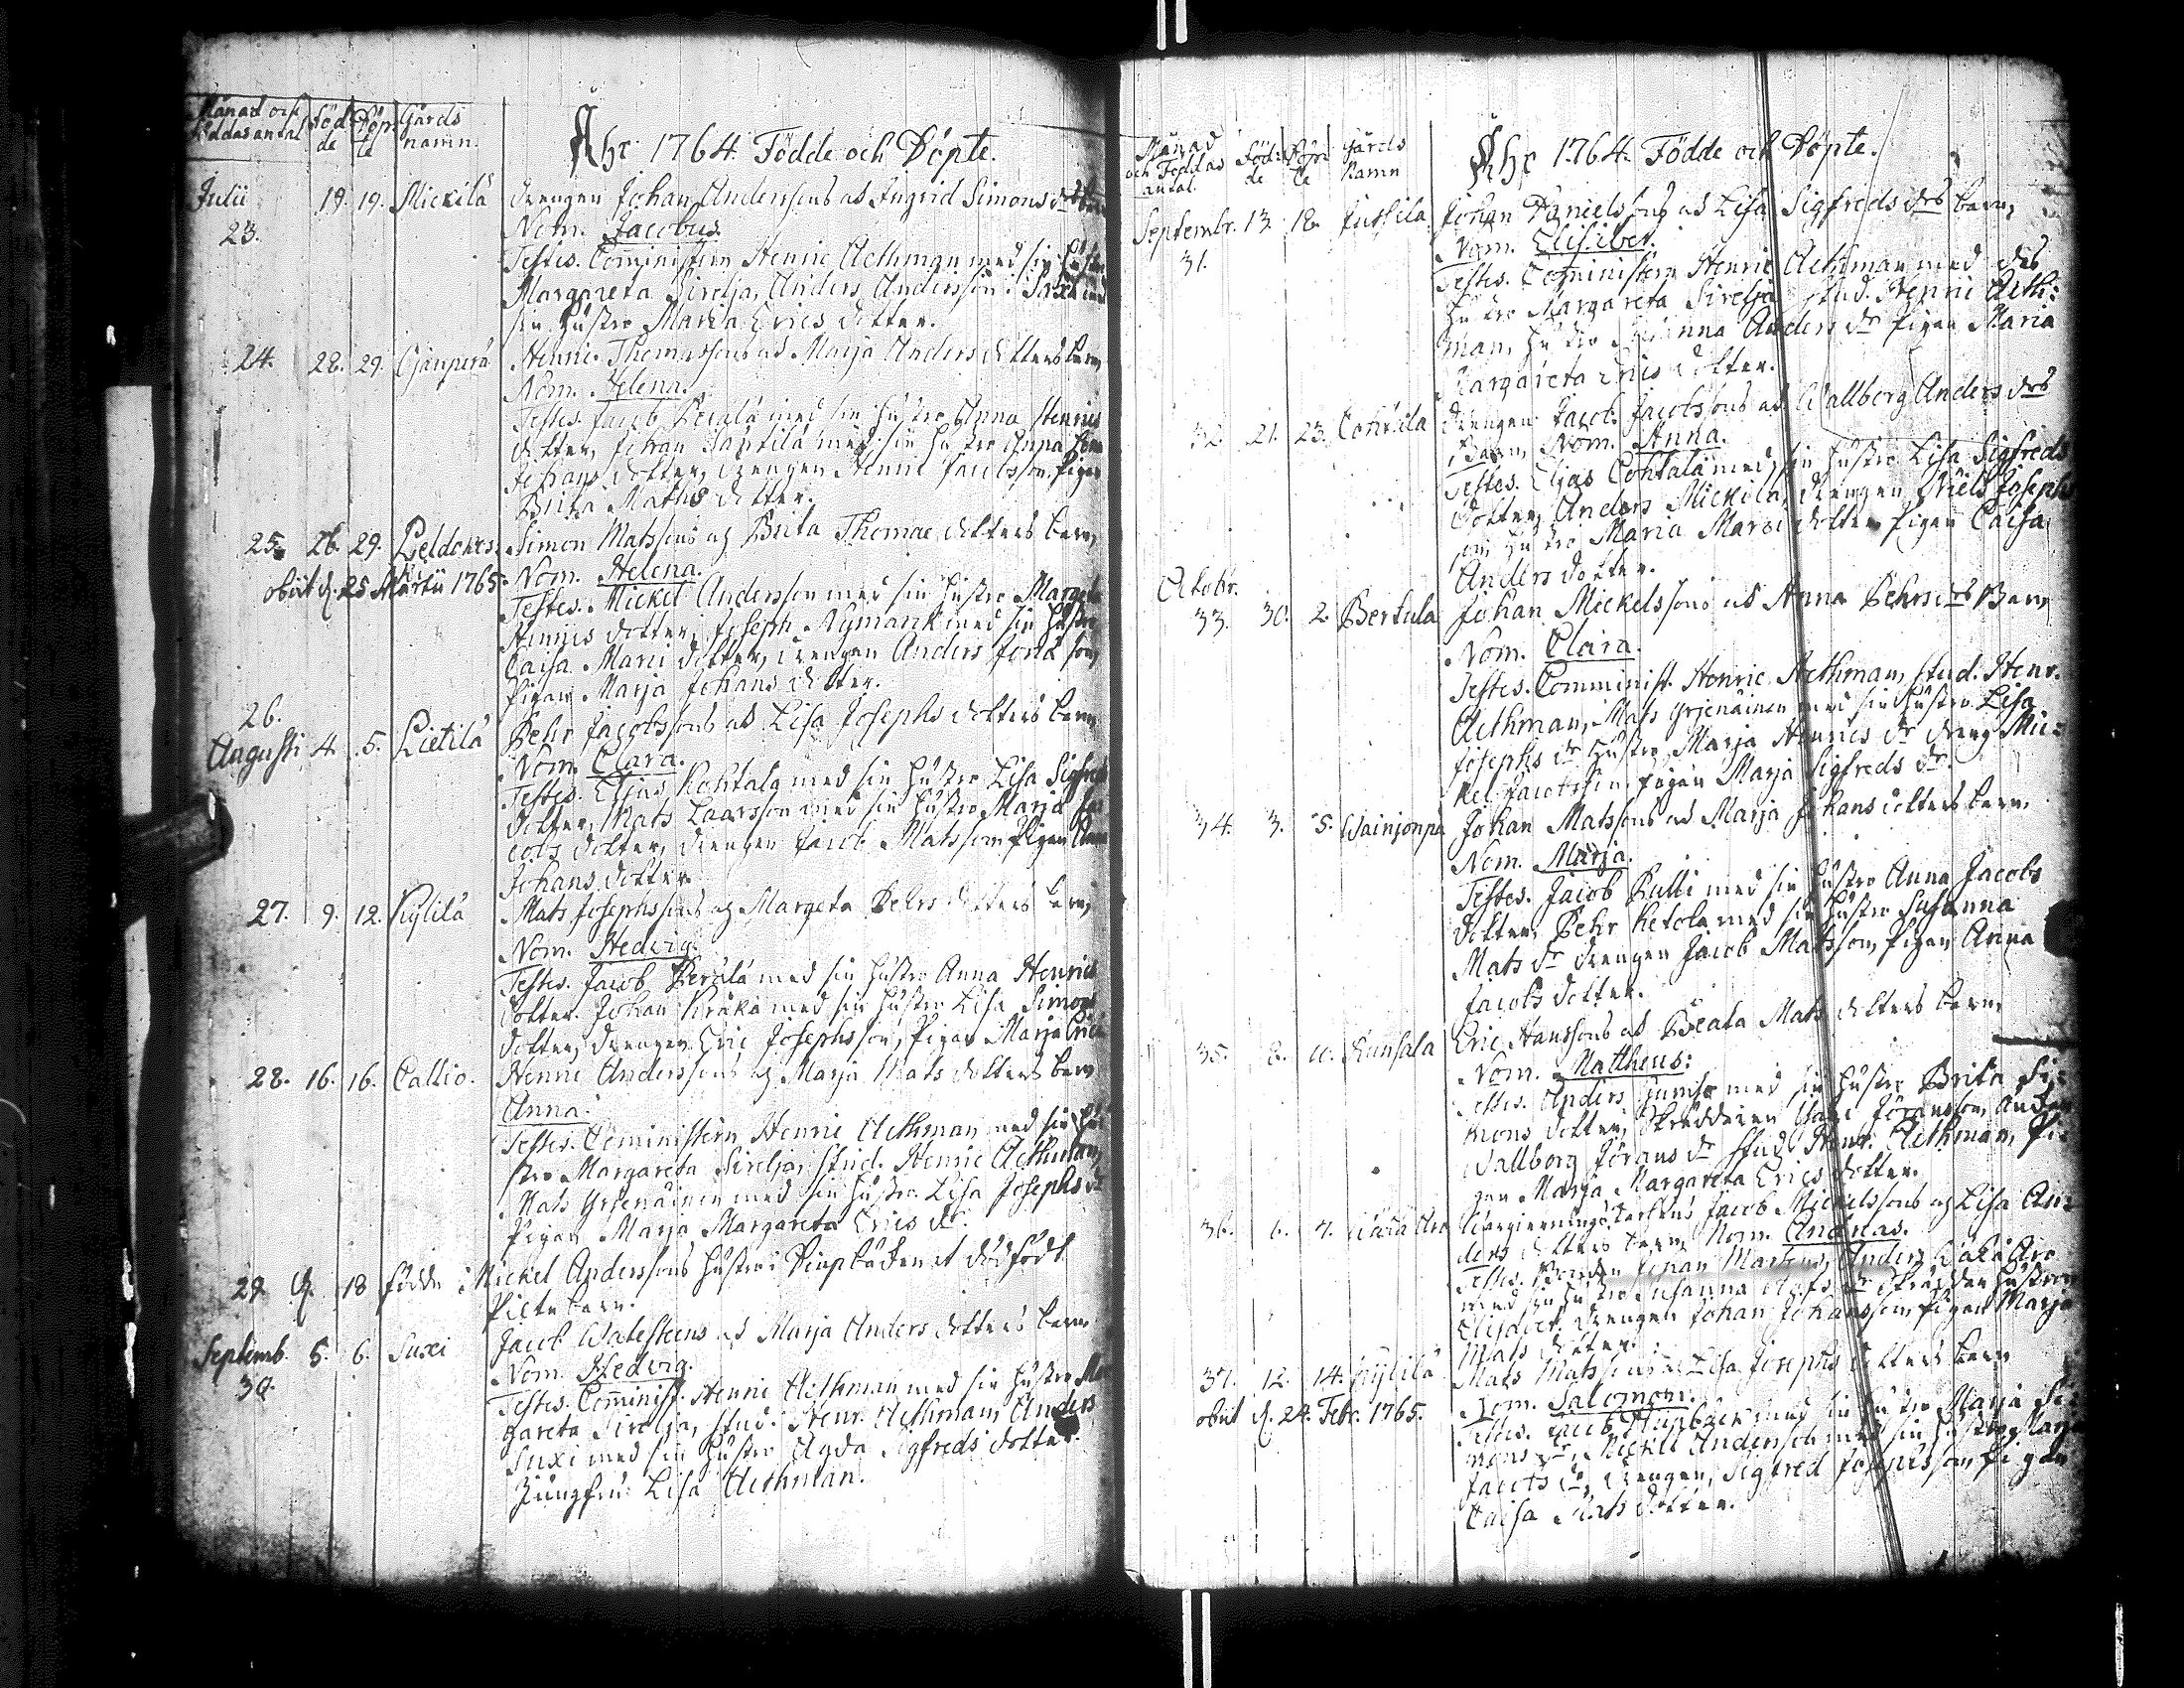 Månad och Föddas antal Föd: de Döp: te Gårds namn.
Åhr 1764. Födde och Döpte.
Julii 23. 18. 19. Mickilä Drengen Johan Anderssons ab Ingrid Simons drs barn
Nom. Jacobus.
Testes. Comministern Henric Aethman med sin hustro
Margareta Sirelia, Anders Andersson Saxi med
sin hustro Maria Erics dotter.
24. 28. 29. Ojanperä Henric Thomassons ab Marja Anders dotters barn,
Nom. Helena.
Testes. Jacob Perälä med sin hustro Anna Henrics
dotter, Johan Santila med sin hustro Anna
Johans dotter, drengen Henric Jacobsson, Pigan
Brita Mathis dotter.
25. 26. 29. Peldones. Simon Matssons och Brita Thomae dotters barn,
obiit d. 25 Martii 1765. Nom. Helena.
Testes. Mickel Andersson med sin hustro Margeta
Henrics dotter, Joseph Nymanck med sin hustro
Caisa Marci dotter, drengen Anders Jona son,
Pigan Marja Johans dotter.
26.
Augusti 4. 5. Pietilä Pehr Jacobssons ab Lisa Josephs dotters barn
Nom. Clara.
Testes. Elias Kohtala med sin hustro Lisa Sigfreds
dotter, Mats Laarsson med sin hustro Marja Ja-
cobs dotter, drengen Jacob Matsson, Pigan Anna
Johans dotter.
27. 9. 12. Kylilä Mats Josephssons och Margeta Pehrs dotters barn,
Nom. Hedvig.
Testes. Jacob Perälä med sin hustro Anna Henrics
dotter. Johan Kråka med sin hustro Lisa Simons
dotter, drengen Eric Josephsson, Pigan Marja Erics
28. 16. 16. Callio. Henric Anderssons och Marja Mats dotters barn
Anna.
Testes. Comministern Henric Aethman med sin hu-
stro Margareta Sirelia, Stud. Henric Aethman,
Mats Yrjenäinen med sin hustro Lisa Josephs dr
Pigan Marja Margareta Erics dr.
29. 18 födde Mickel Anderssons hustro i Puupbacken et dödfödt
Piltebarn.
Septemb. 5. 6. Saxi Jacob Walesteens ab Marja Anders dotters barn
30. Nom. Hedvig.
Testes. Comminist. Henric Aethman med sin hustro Mar
gareta Sirelia, Stud. Henr. Aethman, Anders
Saxi med sin hustro Agda Sigfreds dotter.
Jungfru Lisa Aethman.
Månad och Föddas antal. Föd: de Döp: te Gårds Namn
Åhr 1764. Födde och Döpte.
Septembr. 13. 18. Jussila Johan Danielssons ab Lisa Sigfreds drs barn,
31. Nom. Elisabet.
Testes. Comministern Henric Aethman med dess
hustro Margareta Sirelia Stud. Henric Aeth:
man, hustro Susanna Anders dr Pigan Maria
Margareta Erics dotter.
32. 21. 23. Cohtala Drengen Jacob Jacobssons ab Wallborg Anders drs
Barn, Nom. Anna.
Testes. Elias Cohtala med sin hustro Lisa Sigfreds
dotter, Anders Mickila, drengen Niels Josephs
son hustro Maria Marci dotter Pigan Caisa
Anders dotter.
Octobr.
33. 30. 2. Bertula Johan Mickelssons ab Anna Pehrs drs Barn
Nom. Clara.
Testes. Comminist. Henric Aethman, Stud. Henr.
Aethman, Mats Yrjenäinen med sin hustro Lisa
Josephs dr hustro Marja Henrics dr dreng Mic:
kel Jacobsson, Pigan Marja Sigfreds dr.
34. 3. 5. Wainjonpä Johan Matssons ab Marja Johans dotters barn.
Nom. Marja.
Testes. Jacob Pulli med sin hustro Anna Jacobs
dotter, Pehr Ketola med sin hustro Susanna
Mats dr drengen Jacob Matsson, Pigan Anna
Jacobs dotter.
35. 8. 11. Kunsala Eric Hanssons ab Beata Mats dotters barn,
Nom. Mattheus:
Testes. Anders med sin hustro Brita Si:
mons dotter, Skräddaren Göransson,
Wallborg Jörans dr Stud. Henr. Aethman, Pi
gan Marja Margareta Erics dotter.
36. 6. 7. Jacob Mickelssons och Lisa An:
ders dotters barn Nom. Andreas.
Testes. Bonden Johan Anders
med sin hustro Susanna Olofs dr Skräddar hustron
Elisabet, drengen Johan Johansson, Pigan Marja
Mats dotter.
37. 12. 14. Kylilä Mats Matssons ab Lisa Josephs dotters barn
obiit d. 24. Febr. 1765. Nom. Salomon.
Testes. Jacob med sin hustro Marja Si:
mons dr, Mickel Andersson med sin hustro Marja
Jacobs dr, drengen Sigfred Josephsson, Pigan
Caisa Mats dotter.